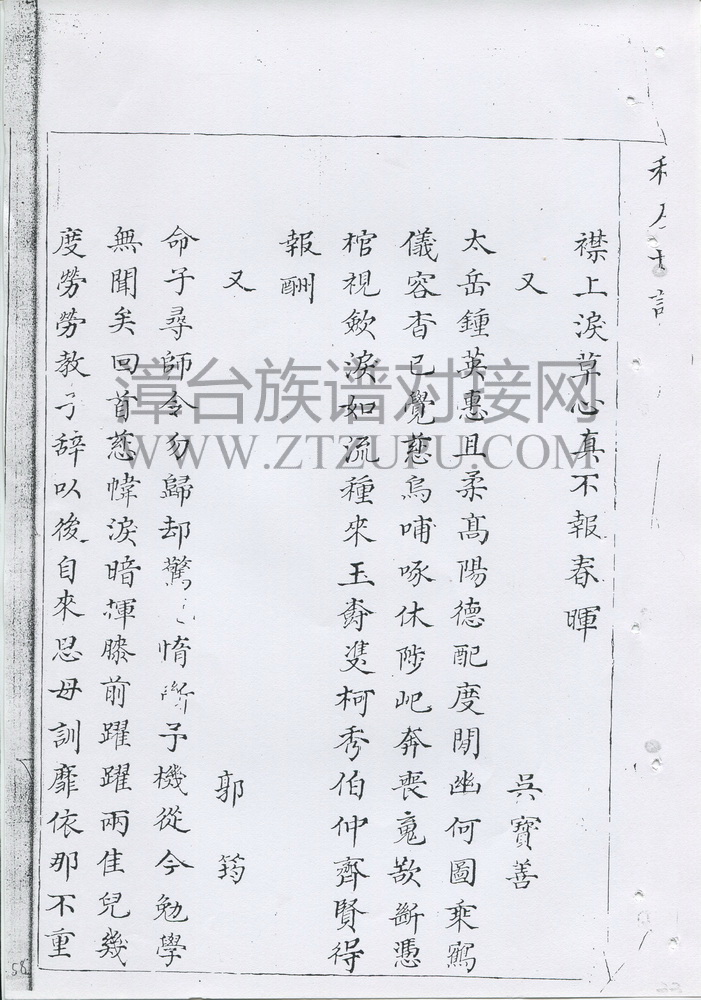 襟上淚草心真不報春暉
又 吳寶善
太岳鍾英惠且柔高陽德配度閒幽何圖乘鶴
儀容杳已覺慈烏哺啄休陟屺奔喪魂欲斷憑
棺視歛淚如流種來玉壽雙柯秀伯仲齊賢得
報酬
又 郭筠
命子尋師令勿歸却驚惰子機從今勉學
無聞矣回首慈幃淚暗揮膝前躍躍兩佳兒幾
度勞勞教子辭以後自來思母訓靡依那不重
漳台族谱对接网
WWW.ZTZUPU.COM
58